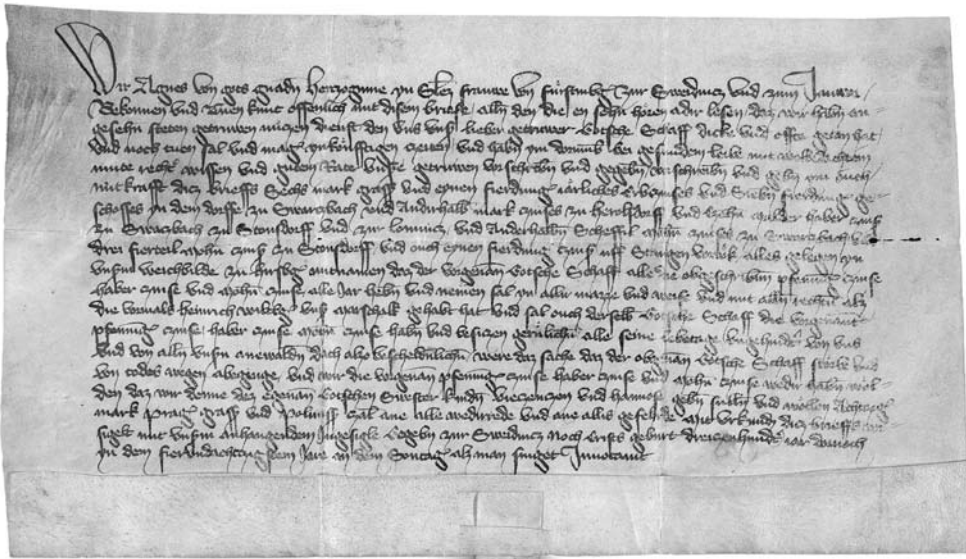 Wir Agnes von gots gnadin Herzoginne yn Slezien frauwe von Furstinbg zur Sweidnicz vnd zum Jawor
Bekennen vnd tuen kunt offenlich mit disem briefe allin den die en sehin horen adir lesen daz wir habin an
gesehn steten getruwen nuczen dienst den vns vnsir lieber getruwer Gotsche Schaff dicke vnd offte getan hat
vnd noch tuen sal vnd mag yn kunfftigen czeiten vnd habin ym dorumb bei gesundem leibe mit wolbedochtem
mute rechtir wissen vnd gutem Rate vnsir getruwen vorschrebin vnd gegebin vorschreibin vnd gebin ym ouch
mit krafft dicz brieffs Sechs mark grosch vnd eynen fierdung ierliches Erbczinses vnd Sieben fierdung ge-
schosses yn dem dorffe zu Swarzbach vnd Anderhalb mark czinses zu Herolsdorff vnd czehn malder haber czins
zu Swarzbach zu Stonsdorff vnd zur Lomnicz vnd Anderhalbin Scheffil mohn czinses zu Swarzbach vnd
drei fierteil mohn czins zu Stonsdorff vnd ouch eynen fierdung czins uff alles gelegen yn
vnsirm weichbilde zu Hirsbg daz der vorgenan Gotsche Schaff alle die abgeschrebin pfenning czinse
haber czinse vnd mohn czinse alle Jar hebin vnd nemen sal yn allir mazze vnd weise vnd mit allin rechtin als
die vormals Heinrich vnsir Marschalk gehabt hat vnd sal ouch derselb Gotsche Schaff die vorgenante
pfenning czinse haber czinse mohn czinse habin vnd besiczen geruelichin alle seine lebetage vngehindirt von vns
vnd von allin vnsirn anewaldin doch also bescheidinlichin were daz sache daz der obgenan Gotsche Schaff storbe vnd
von todes wegen abeginge vnd wir die vorgenan pfenning czinse haber czinse vnd mohn czinse wedir habin wol-
den daz wir denne dez egenan Gotschen Swester kindin Vicenczen vnd Hannose gebin sullin vnd wollen Achczig
mark prag grosch vnd polnisch czal ane alle wedirrede vnd ane allis geferde Mit vrkunde dicz brieffs vor-
sigelt mit vnsirm anhangendem Ingesigle Gegebin zur Sweidnicz noch Crists geburt dreiczenhundt iar dornoch
yn dem fierundachczugistem Jare an dem Sontag als man singet Inuocauit